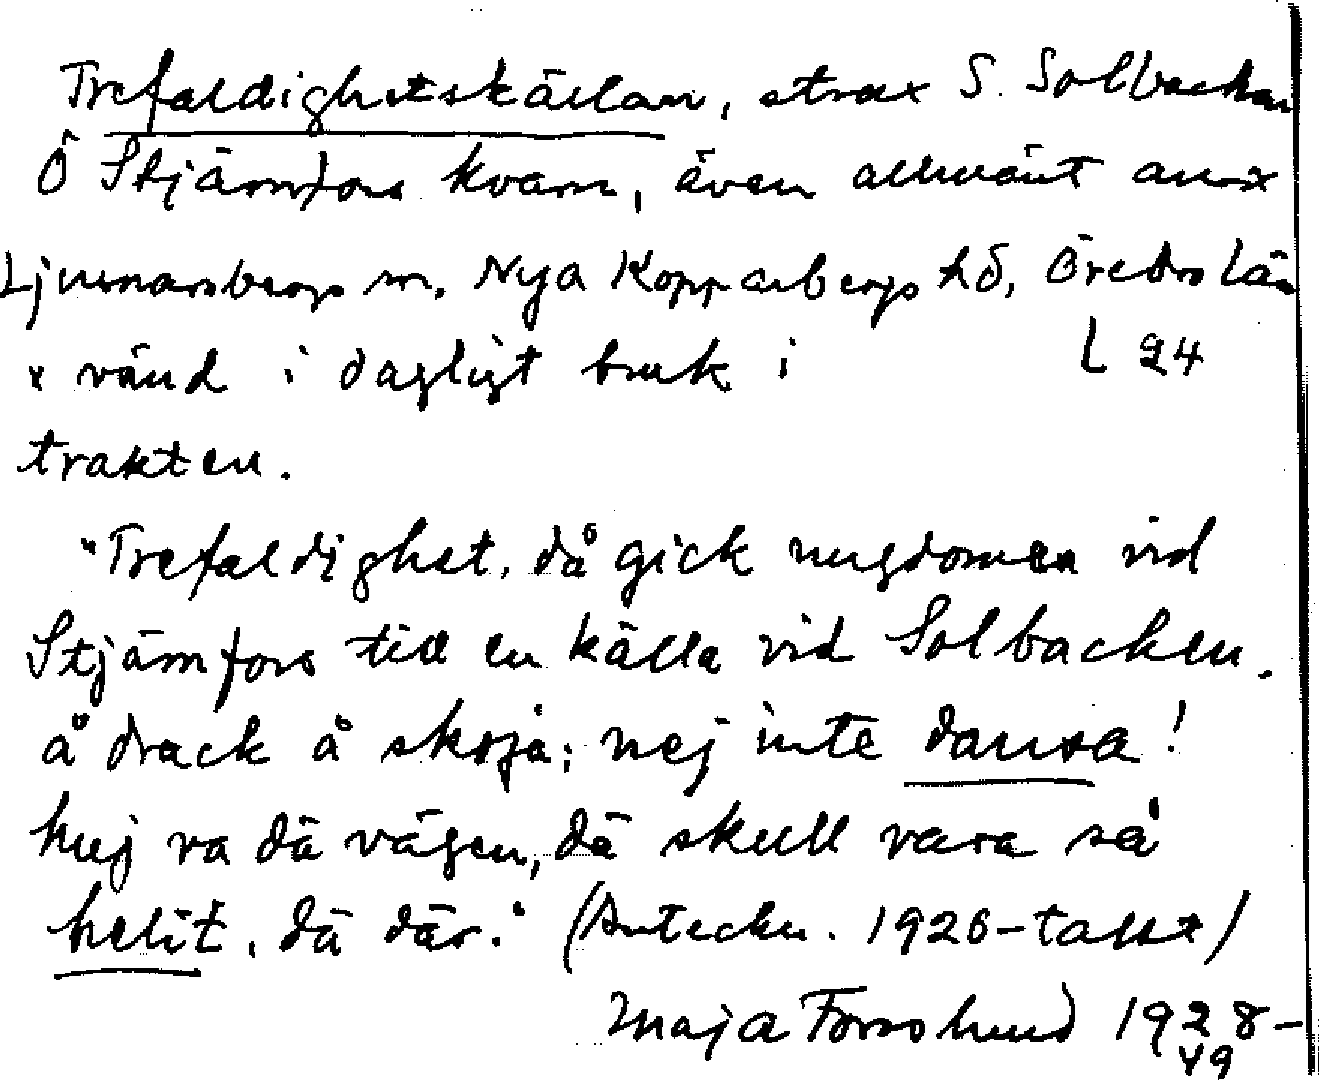 Trefaldighetskällan, strax S. Solbacken
Ö Stjärnfors kvarn, även allmänt anx
Ljusnarsbergs sn, Nya Kopparbergs hd, Örebro län
x vänd i dagligt bruk i L 24
trakten.
"Trefaldighet, då gick ungdomen vid
Stjärnfors till en källa vid Solbacken.
å drack å skoja; nej inte dansa!
huj va dä vägen, dä skull vara så
helit, dä där." (Anteckn. 1926-talet)
Maja Forsslund 1928-
49